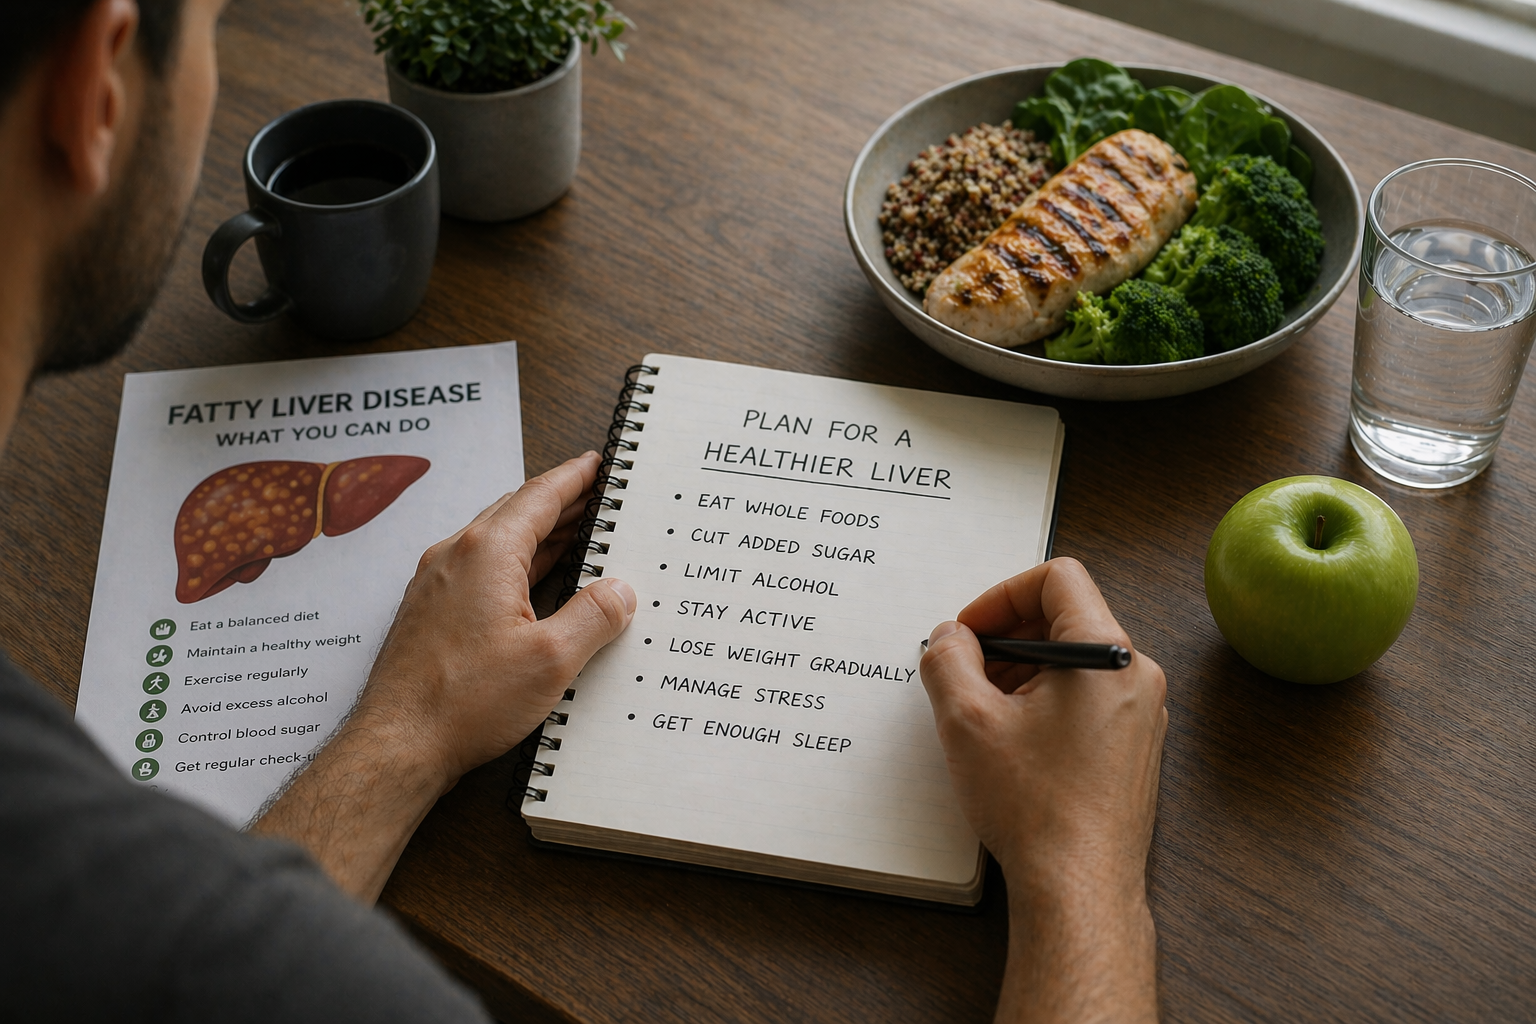 FATTY LIVER DISEASE
WHAT YOU CAN DO
Eat a balanced diet
Maintain a healthy weight
Exercise regularly
Avoid excess alcohol
Control blood sugar
Get regular check-
PLAN FOR A
HEALTHIER LIVER
• EAT WHOLE FOODS
• CUT ADDED SUGAR
• LIMIT ALCOHOL
• STAY ACTIVE
• LOSE WEIGHT GRADUALLY
• MANAGE STRESS
• GET ENOUGH SLEEP